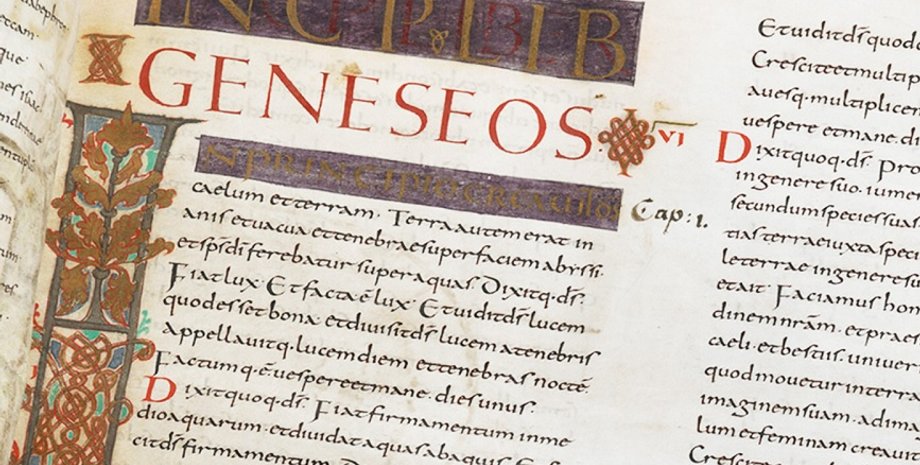 INCP LIB
GENESEOS VI
IN PRINCIPIO CREAVIT DS̄ Cap: 1.
caelum et terram· Terra autem erat in
anis et uacua et tenebrae super faciem abyssi·
et sp̄s dī ferebatur super aquas· Dixitq· ds̄·
Fiat lux· Et facta ē lux· Et uidit ds̄ lucem
quod esset bona et diuisit ds̄ lucem a tenebris
appellauitq· lucem diem et tenebras noctē·
Factumq· ē uespere et mane· dies unus·
Dixit quoq· ds̄· Fiat firmamentum in me
dio aquarum· et diuidat aquas ab aquis·
cit ds̄ firmamentum·
Et uidit ds̄ quod
Crescite et multip
auesq· multiplice
uespere et mane· di
Dixit quoq· ds̄· Pro
in genere suo· iume
secundum species sua
tias terrae iuxta speci
le terrae in genere s
et ait· Faciamus hom
dinem nr̄am· et prae
caeli· et bestiis· uniuer
quod mouetur in terra
imaginem suam· ad ima
lum et feminam creauit
Crescite